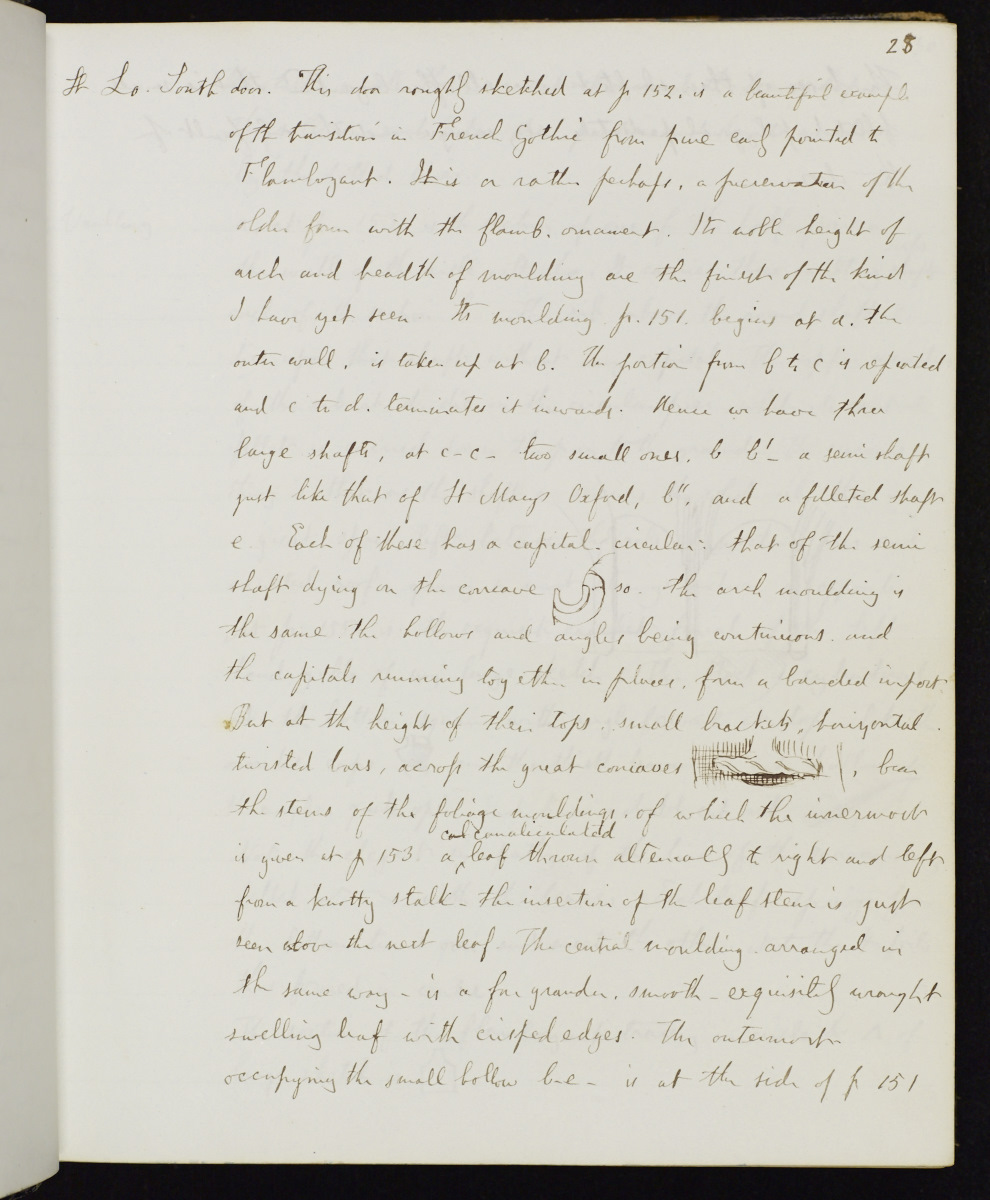 28
St Lo. South door. This door roughly sketched at p 152. is a beautiful example
of the transition in French Gothic from pure early pointed to
Flamboyant. It is or rather perhaps, a preservation of the
older form with the flamb. ornament. Its noble height of
arch and breadth of moulding are the finest of the kind
I have yet seen. Its moulding p. 151. begins at a. the
outer wall, is taken up at b. the portion from b to c is repeated
and c to d. terminates it inwards. Hence we have three
large shafts, at c - c - two small ones, b b' - a semi shaft
just like that of St Marys Oxford, b'', and a filleted shaft
e. Each of these has a capital. circular: that of the semi
shaft dying on the concave so. the arch moulding is
the same. the hollows and angles being continuous. and
the capitals running together in places, form a banded impost.
But at the height of their tops. small brackets, horizontal
twisted bars, across the great concaves, bear
the stems of the foliage mouldings. of which the innermost
canaliculated
is given at p 153. a leaf thrown alternately to right and left
from a knotty stalk - the insertion of the leaf stem is just
seen above the next leaf. The central moulding. arranged in
the same way - is a far grander. smooth - exquisitely wrought
swelling leaf with crisped edges. The outermost
occupying the small hollow b-e - is at the side of p 151